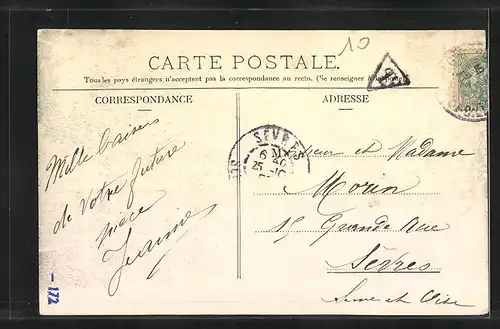 10
CARTE POSTALE.
Tous les pays étrangers n'acceptent pas la correspondance au recto. (Se renseigner à
CORRESPONDANCE
ADRESSE
SÈVRES
Mille baisers
de votre future
nièce
Jeanne
et Madame
Morin
15 Grande Rue
Sèvres
Seine et Oise
- 172